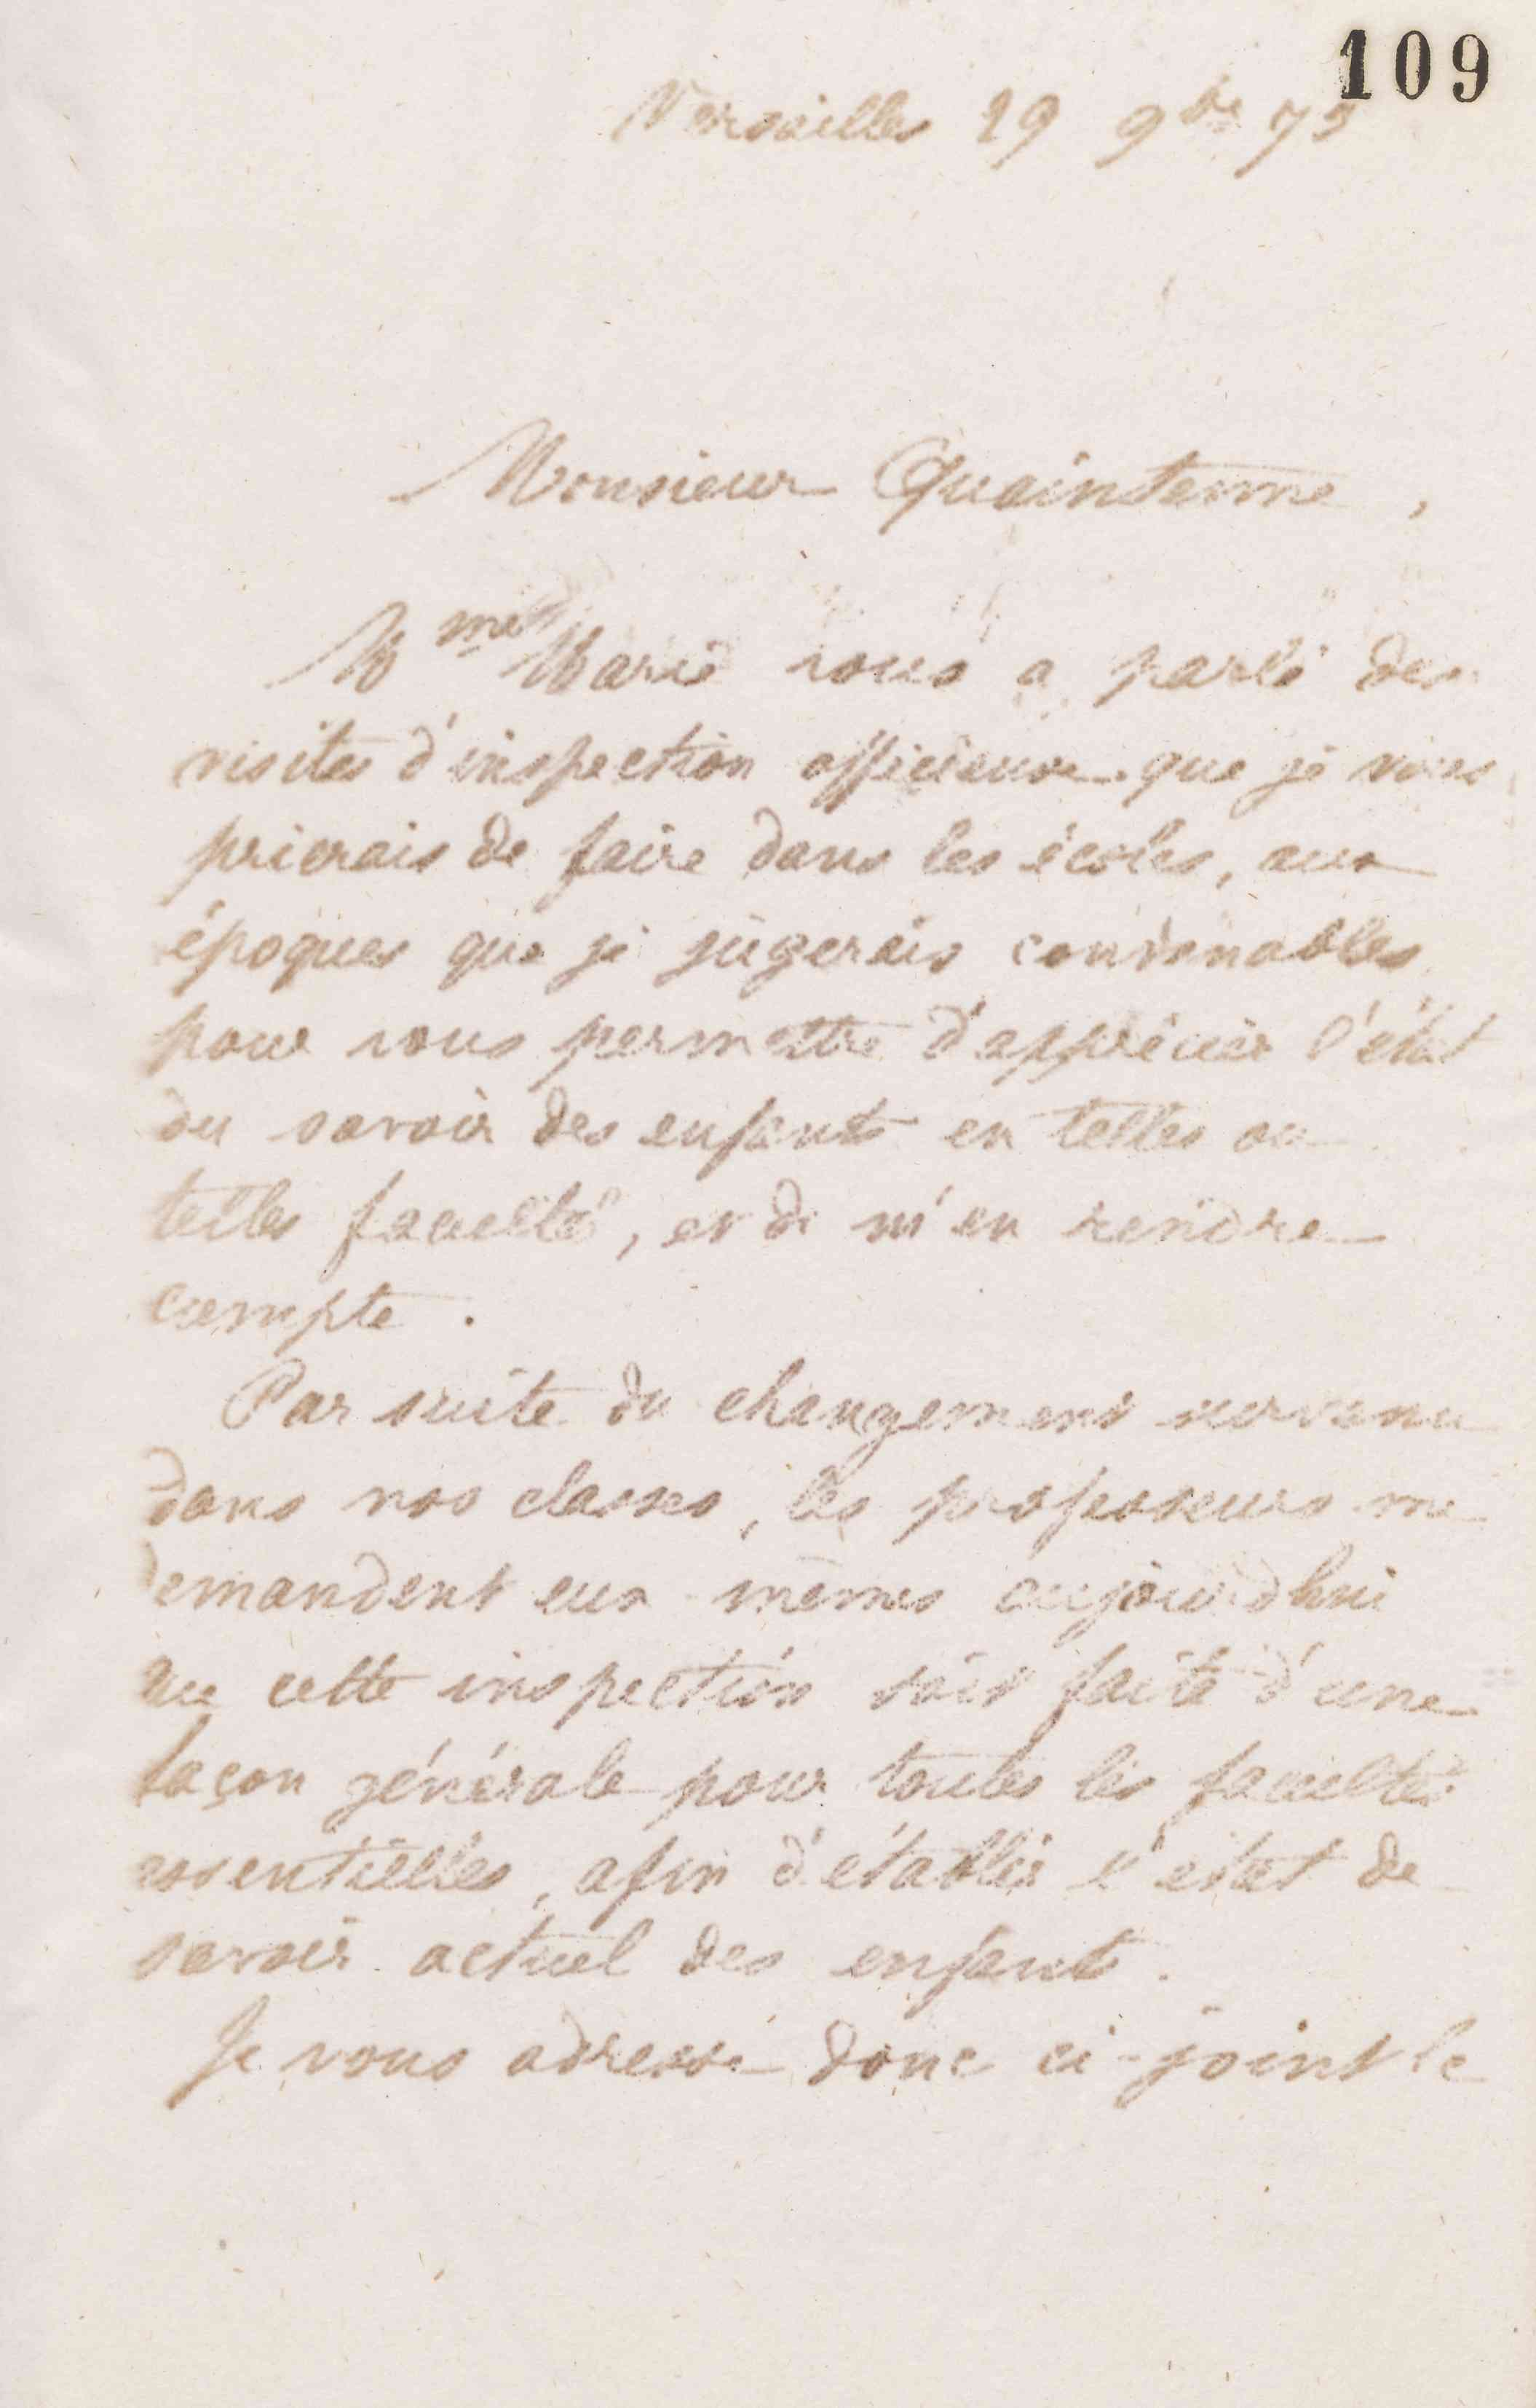 109
Versailles 29 9bre 75
Monsieur Quaintenne,
Mme Marie vous a parlé des
visites d'inspection officieuse que je vous
prierais de faire dans les écoles, aux
époques que je jugerais convenables
pour vous permettre d'apprécier l'état
du savoir des enfants en telles ou
telles facultés, et de m'en rendre
compte.
Par suite du changement survenu
dans nos classes, les professeurs me
demandent eux-mêmes aujourd'hui
que cette inspection soit faite d'une
façon générale pour toutes les facultés
essentielles, afin d'établir l'état de
savoir actuel des enfants.
Je vous adresse donc ci-joint le